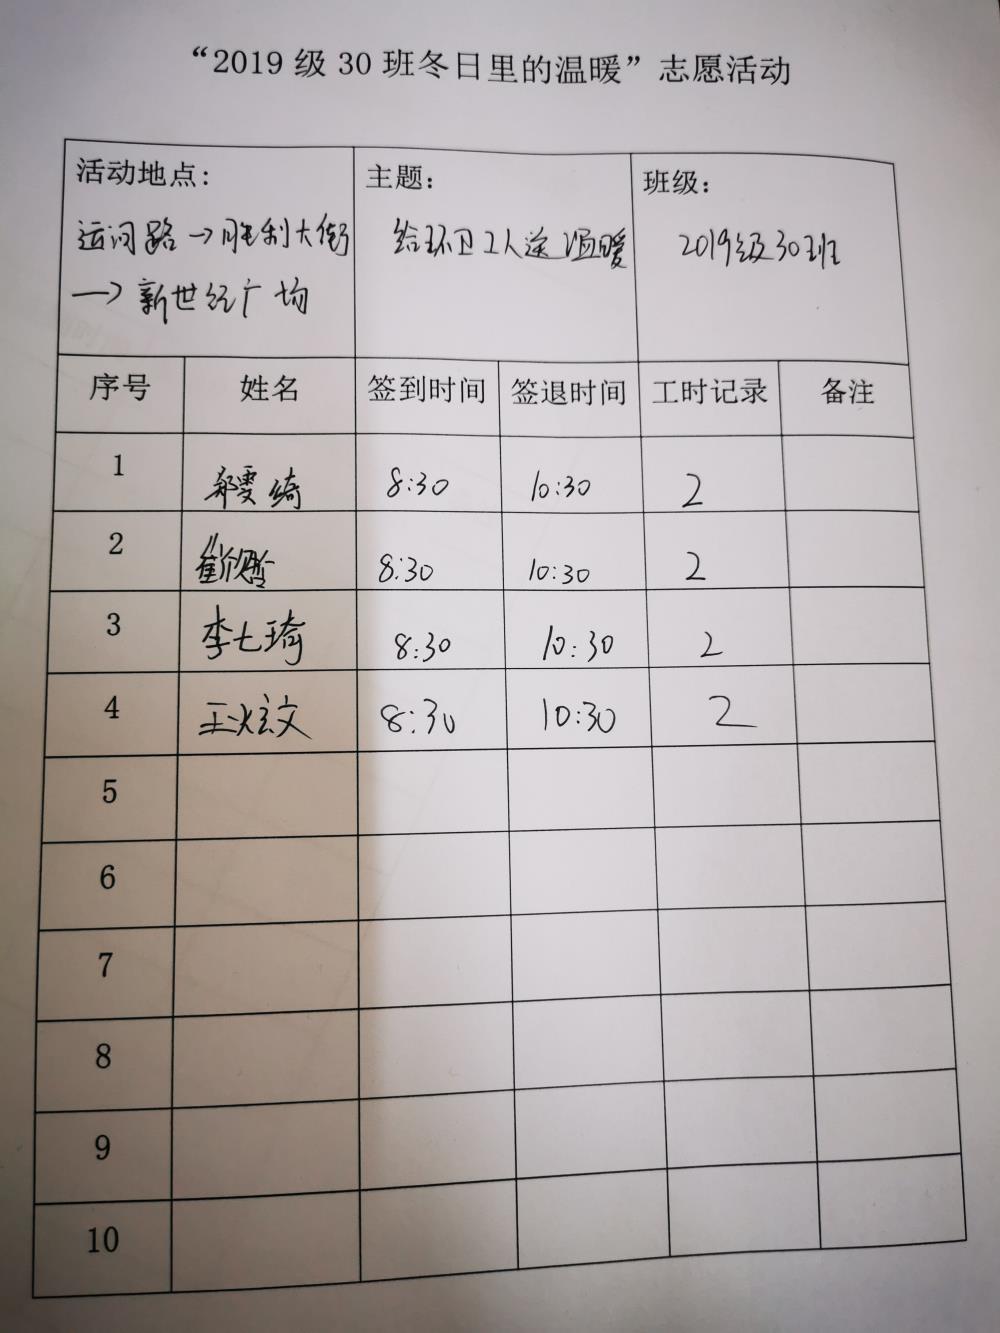 “2019 级 30 班冬日里的温暖”志愿活动
活动地点:
运河路→胜利大街
→新世纪广场
主题:
给环卫工人送温暖
班级:
2019级30班
序号 姓名 签到时间 签退时间 工时记录 备注
1 郝雯绮 8:30 10:30 2
2 8:30 10:30 2
3 李七琦 8:30 10:30 2
4 王炫文 8:30 10:30 2
5
6
7
8
9
10